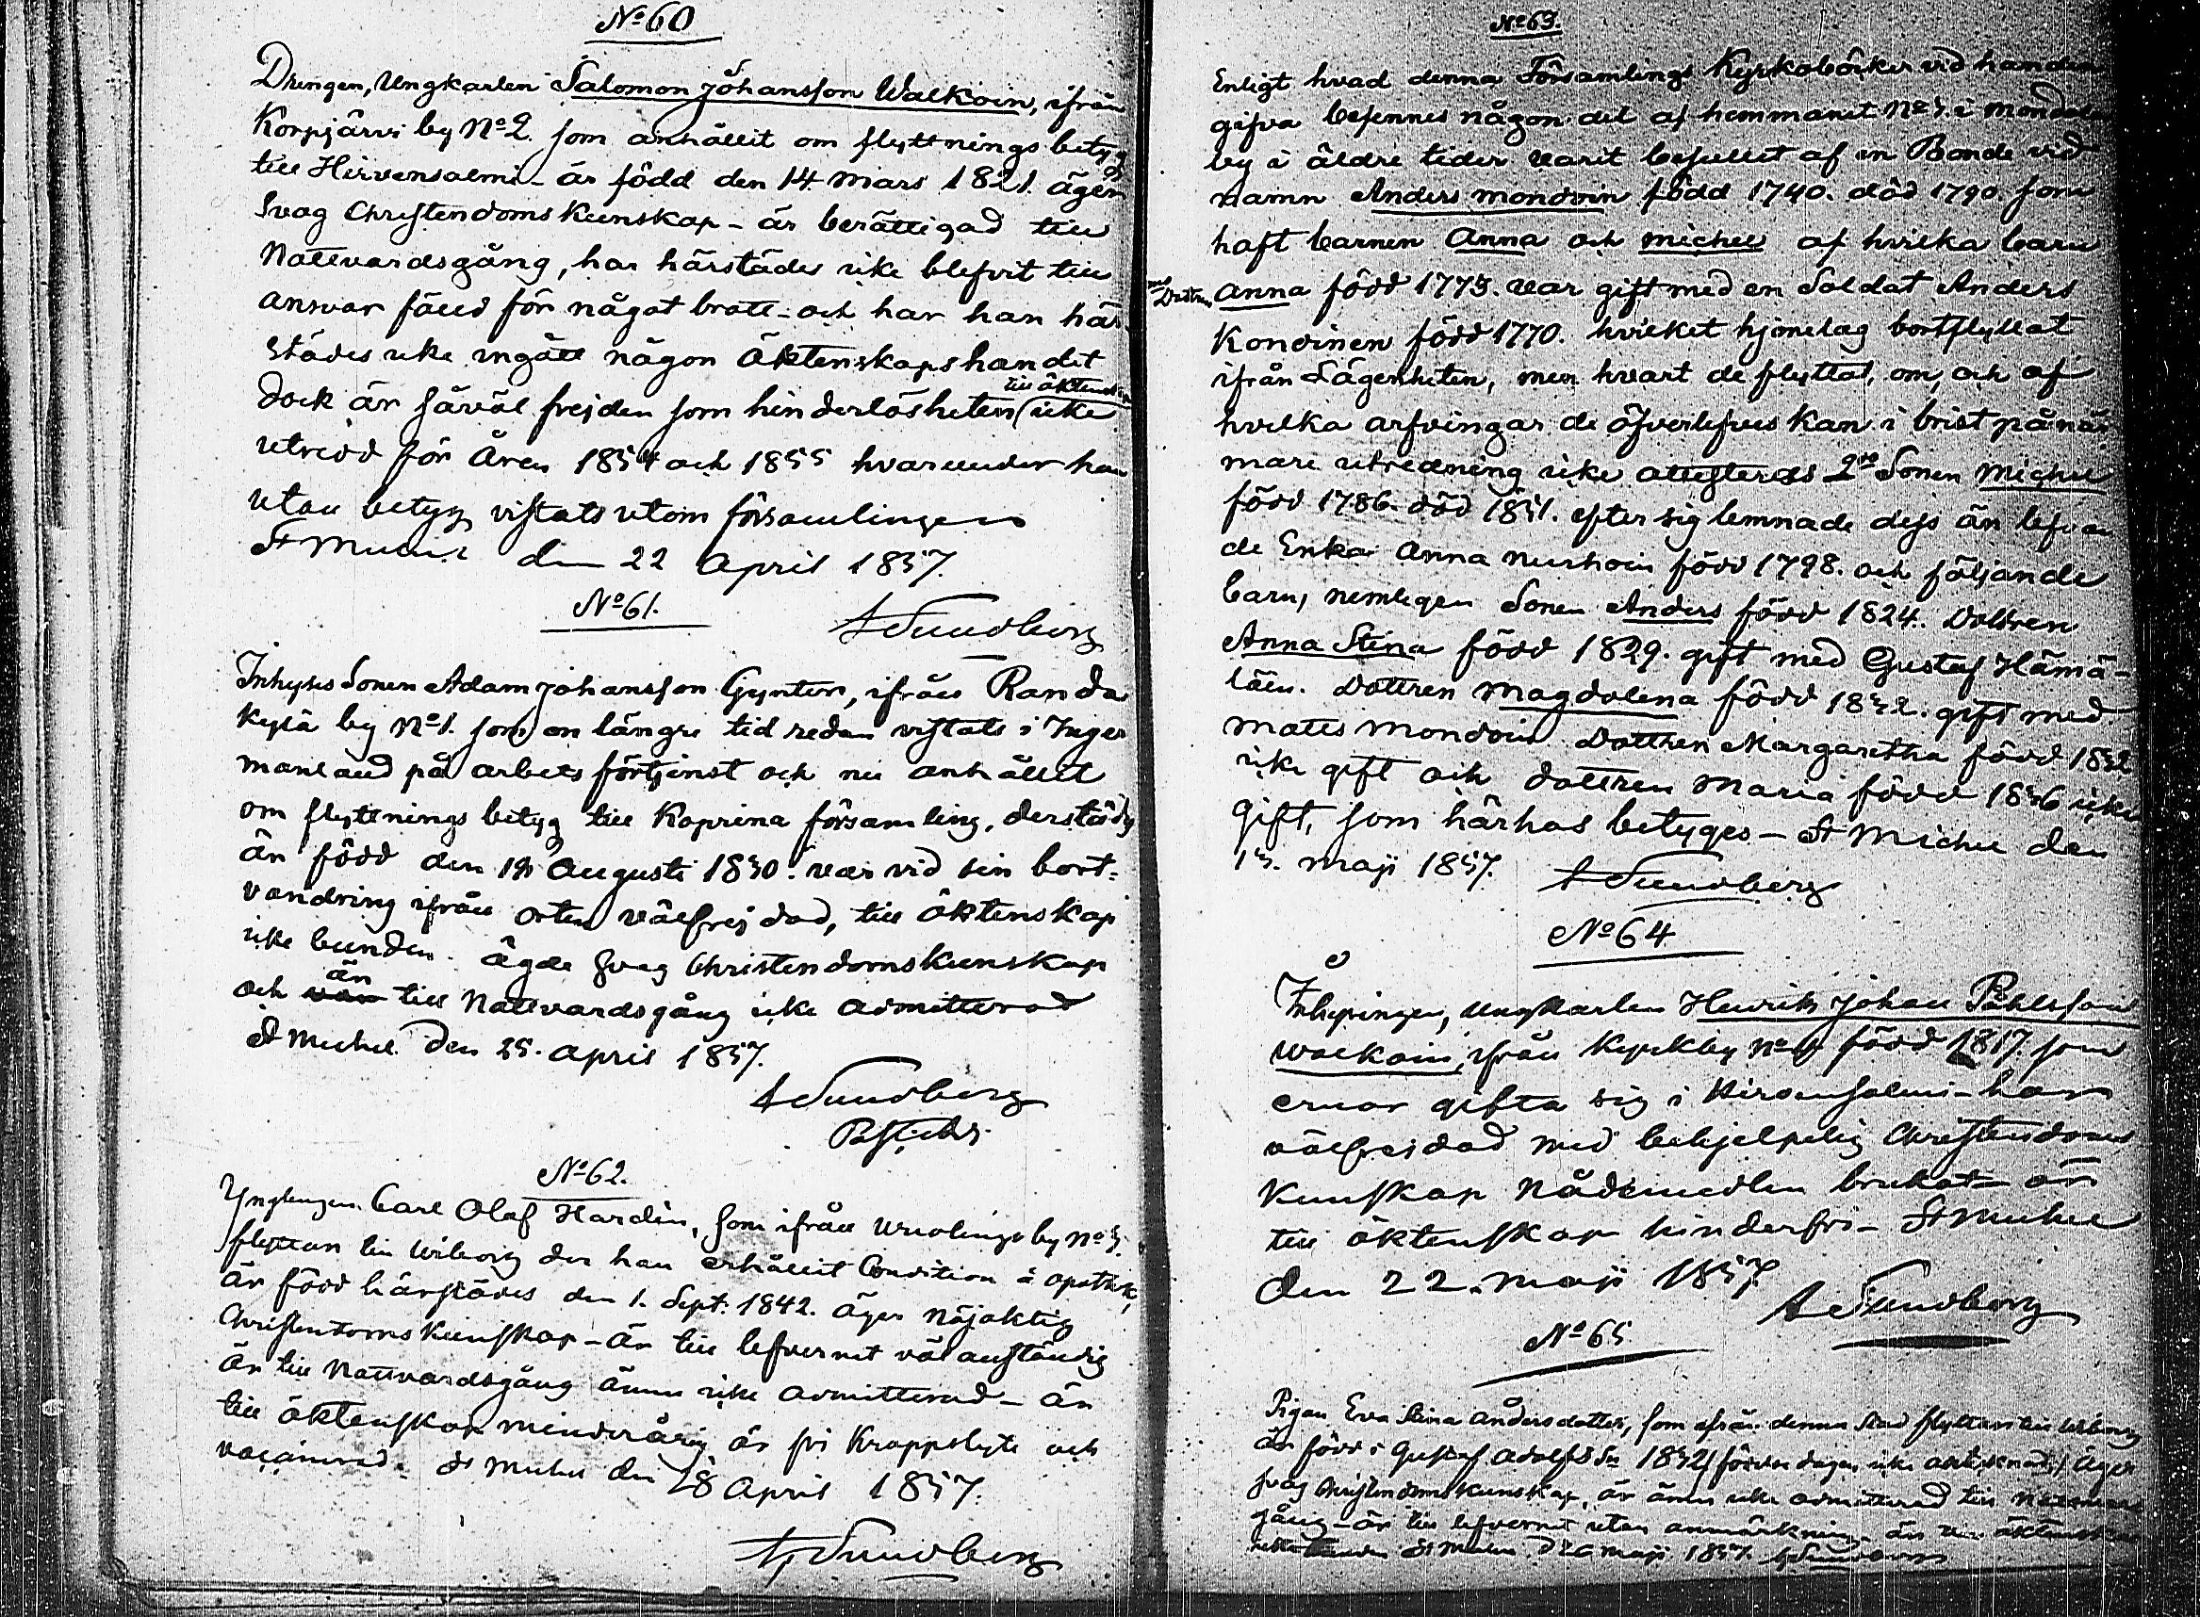 No 60
Drengen, Ungkarlen Salomon Johansson Walkoin, ifrån
Korpjärvi by No 2. som anhållit om flyttnings betyg
till Hirvensalmi - är född den 14 Mars 1821. äger
svag Christendoms Kunskap - är berättigad till
Nattvardsgång, har härstädes icke blefvit till
ansvar fälld för något brott - och har han här-
städes icke ingått någon Äktenskapshandel
till äktenskap
dock är såväl frejden som hinderlösheten icke
utredd för Åren 1854 och 1855 hvarunder han
utan betyg vistats utom församlingen
St Michel den 22 April 1857.
A Sundberg
No 61.
Inhyses Sonen Adam Johansson Gynten, ifrån Randa
kylä by No 1. som en längre tid redan vistats i Inger
manland på arbets förtjenst och nu anhållit
om flyttnings betyg till Koprina församling, derstädes
är född den Augusti 1830. var vid sin bort-
vandring ifrån orten välfrejdad, till äktenskap
icke bunden. ägde svag Christendomskunskap
är
och var till Nattvardsgång icke admitterad
St Michel den 25. April 1857.
A Sundberg
No 62.
Ynglingen Carl Olof Hardin, som ifrån Wuolingo by No 3.
flyttar till Wiborg der han erhållit Condition å apothek,
är född härstädes den 1. Sept. 1842. äger nöjaktig
Christendomskunskap - är till lefvernet välanständig
är till Nattvardsgång ännu icke admitterad - är
till äktenskap minderårig är fri Kroppslyte och
vaccinerad. St Michel den 28 April 1857.
A Sundberg
No 63.
Enligt hvad denna Församlings Kyrkoböcker vid handen
gifva befinnes någon del af hemmanet No 3. i Mondola
by i äldre tider varit besuttet af en Bonde vid
namn Anders Mondoin född 1740. död 1790. som
haft barnen Anna och Michel af hvilka barn
Dottren
Anna född 1773. var gift med en Soldat Anders
Kondinen född 1770. hvilket hjonelag bortflyttat
ifrån Lägenheten, men hvart de flyttat, om, och af
hvilka arfvingar de öfverlefves kan i brist på när-
mare utredning icke attesteras 2do Sonen Michel
född 1786. död 1851. efter sig lemnade dess än lefvan
de Enka Anna född 1798. och följande
barn, nemligen Sonen Anders född 1824. Dottren
Anna Stina född 1829. gift med Gustaf Hämä-
läin. Dottren Magdalena född 1832. gift med
Matts Mondoin Dottren Margaretha född 1832
icke gift och dottren Maria född 1836 icke
gift, som härhos betyges - St Michel den
13. Maji 1857.
A Sundberg
No 64
Inhysingen, Ungkarlen Henrik Johan Påhlsson
Walkoin, ifrån Kyrkby No född 1817. som
ernar gifta sig i Hirvensalmi - har
välfrejdad med behjelpelig Christendoms
Kunskap Nådemedlen brukat - är
till äktenskap hinderfri - St Michel
den 22. Maji 1857
A Sundberg
No 65
Pigan Eva Stina Andersdotter, som ifrån denna Stad flyttar till Wiborg
är född i Gustaf Adolfs Sn 1832 födelse dagen icke antecknad / äger
svag Christendomskunskap, är ännu icke admitterad till Nattvards
gång - är till lefvernet utan anmärkning, är till äktenskap
icke bunden St Michel d 26 Maji 1857. A Sundberg